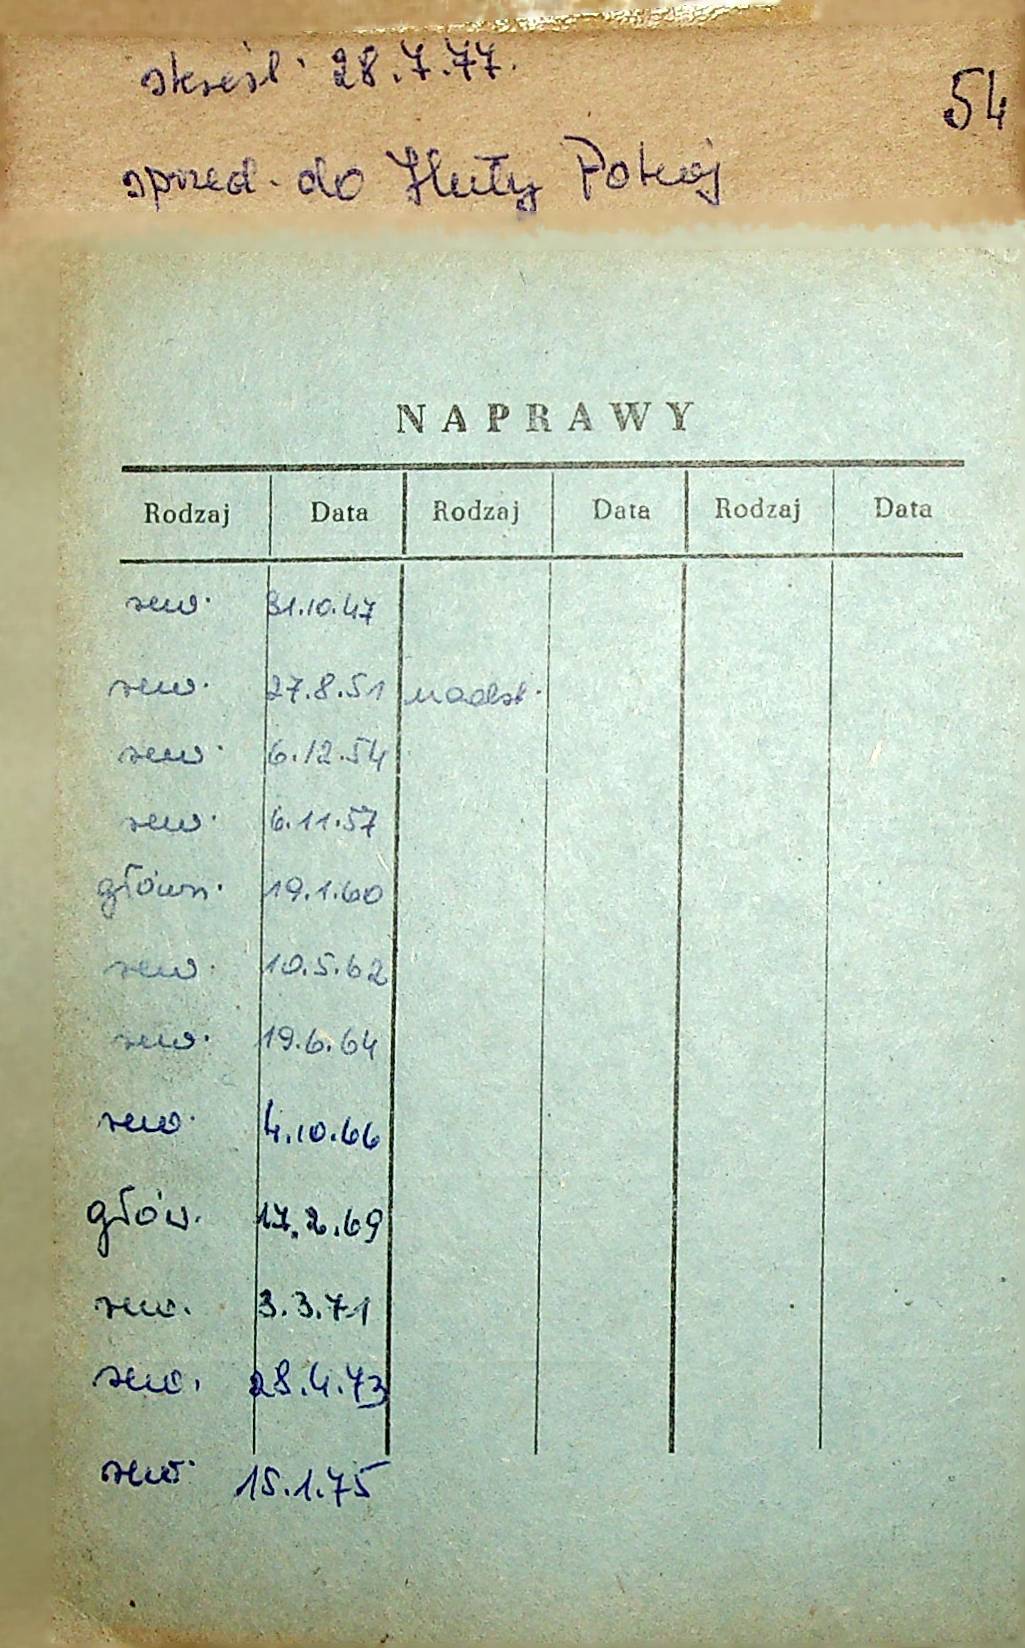 skreśl. 28.7.77.
54
sprzed. do Huty Pokój
NAPRAWY
Rodzaj Data Rodzaj Data Rodzaj Data
rew. 31.10.47
rew. 27.8.51 nadst.
rew. 6.12.54
rew. 6.11.57
główn. 19.1.60
rew. 10.5.62
rew. 19.6.64
rew. 4.10.66
głów. 17.2.69
rew. 3.3.71
rew. 28.4.73
rew. 15.1.75